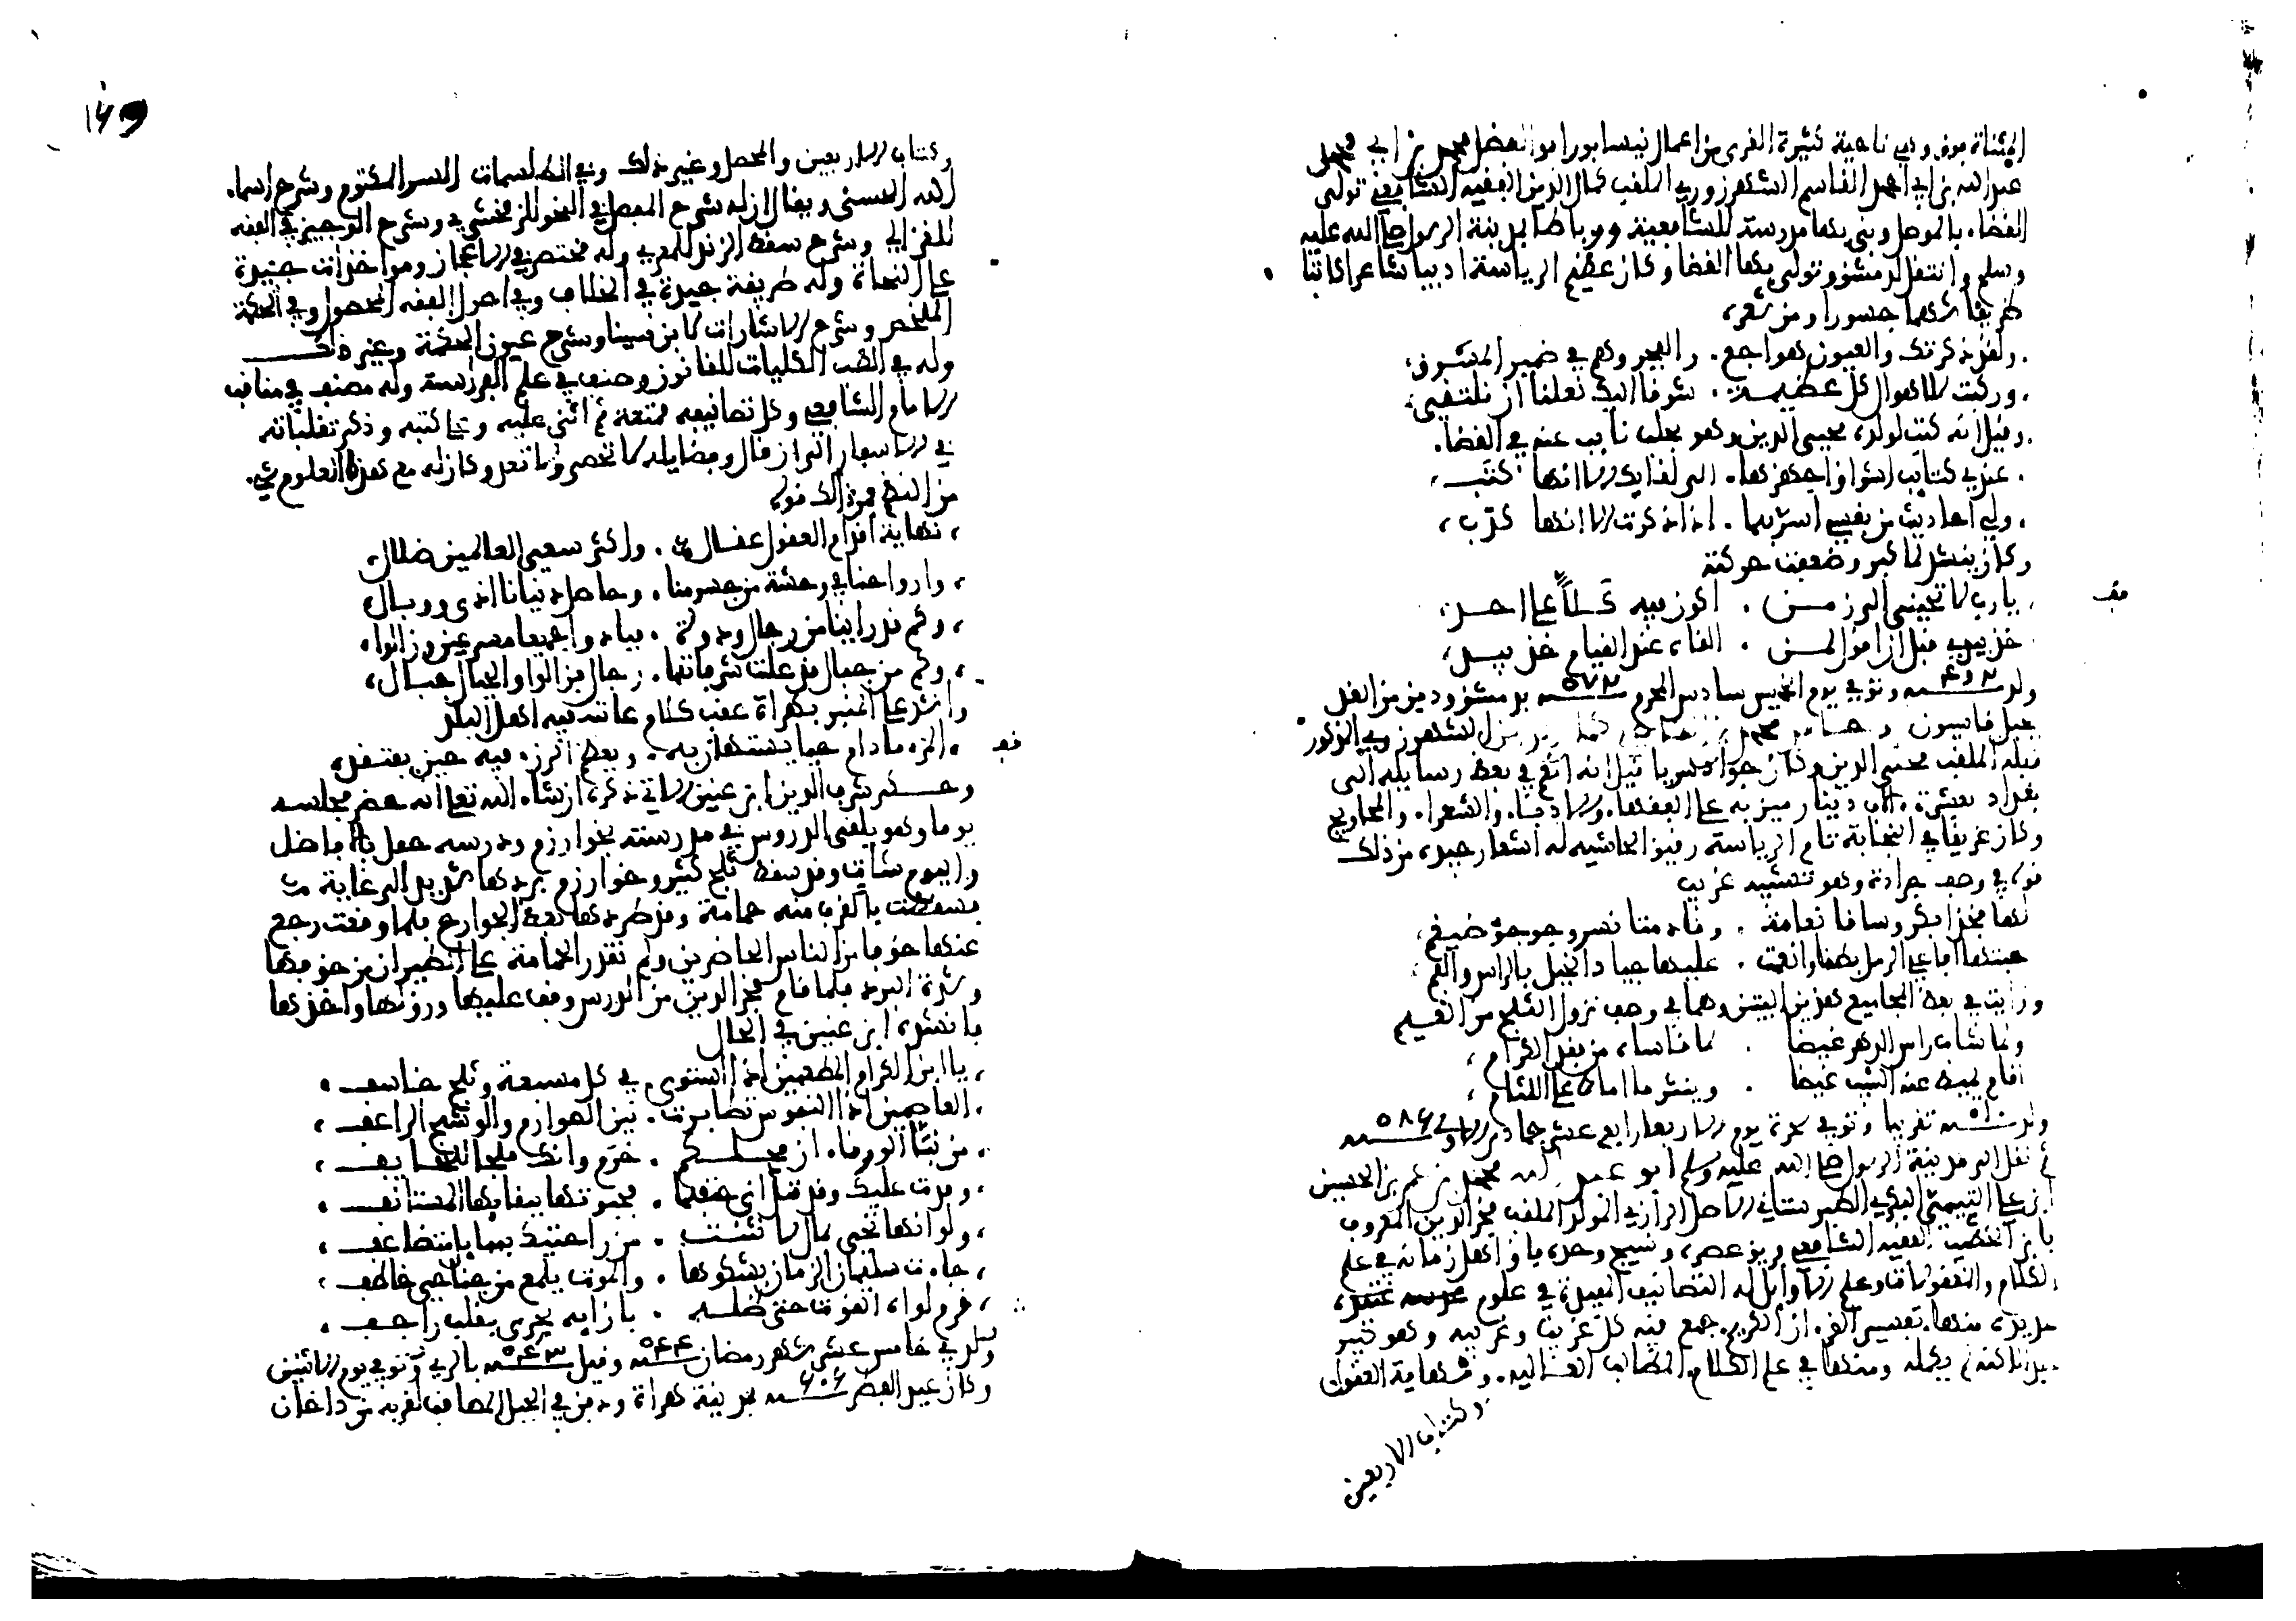 المثناة فوق وهي ناحية كثيرة القرى من أعمال نيسابور أبو الفضل محمد بن أبي محمد
عبد الله بن أبي أحمد القاسم الشهرزوري الملقب كمال الدين الفقيه الشافعي تولى
القضاء بالموصل وبنى بها مدرسة للشافعية ورباطا بمدينة الرسول صلى الله عليه
وسلم وانتقل لدمشق وتولى بها القضا وكان عظيم الرياسة أديبا شاعرا كاتبا
ظريفا شهما جسورا ومن شعره
ولقد ذكرتك والعيون هواجع . والفجر وهم في ضمير المشرق
وركبت للأهوال كل عظيمة . شوقا إليك لعلنا أن نلتقي
وقيل إنه كتب لولده محيي الدين وهو بحلب نايب عنه في القضا
عندي كتايب أشواق أجهزها . إلى لقايك إلا أنها كتب
ولي أحاديث من نفسي أسر بها . إذا ذكرت إلا أنها كذب
وكان ينشد لما كبر وضعفت حركته
يا رب لا تحييني إلى زمن . أكون فيه كلا على أحد
خذ بيدي قبل أن أقول لمن . ألقاه عند القيام خذ بيدي
ولد سنة ٤٩٢ وتوفي يوم الخميس سادس المحرم سنة ٥٧٢ بدمشق ودفن من الغد
بجبل قاسيون محمد الشهرزوري المذكور
قبله الملقب محيي الدين وكان جوادا سريا قيل إنه أنعم في بعض رسايله إلى
بغداد بعشرة آلاف دينار ميزه على الفقها والأدبا والشعرا والمحاويج
وكان عريقا في النجابة تام الرياسة رقيق الحاشيه له أشعار جيدة من ذلك
قوله في وصف جرادة وهو تشبيه غريب
لها فخذا بكر وساقا نعامة . وقادمتا نسر وجؤجؤ ضيغم
حبتها أفاعي الرمل بطنا وأنعمت . عليها جياد الخيل بالراس والفم
ورأيت في بعض المجاميع هذين البيتين وهما في وصف نزول الثلج من الغيم
ولما شاب راس الدهر غيضا . لما قاساه من فقد الكرام
أقام يميط عنه الشيب غيضا . وينثر ما أماط على اللئام
ولد سنة تقريبا وتوفي سحرة يوم الأربعا رابع عشر جمادى الأولى سنة ٥٨٦
ثم نقل إلى مدينة الرسول صلى الله عليه وسلم أبو عبد الله محمد بن عمر بن الحسين
ابن علي التيمي البكري الطبرستاني الأصل الرازي المولد الملقب فخر الدين المعروف
بابن الخطيب الفقيه الشافعي فريد عصره ونسيج وحده فاق أهل زمانه في علم
الكلام والمعقولات وعلم الأوايل له التصانيف المفيدة في علوم
عديدة منها تفسير القرآن الكريم جمع فيه كل غريب وغريبه وهو كبير
جدا لكنه لم يكمله ومنها في علم الكلام المطالب العاليه ونهاية العقول
وكتاب الأربعين
١٦٩
وكتاب الأربعين والمحصل وغير ذلك وفي الطلسمات السر المكتوم وشرح أسماء
الله الحسنى ويقال إن له شرح المفصل في النحو للزمخشري وشرح الوجيز في الفقه
للغزالي وشرح سقط الزند للمعري وله مختصر في الإعجاز ومواخذات جيدة
على النحاة وله طريقة جيدة في الخلاف وفي أصول الفقه المحصول وفي الحكمة
الملخص وشرح الإشارات لابن سينا وشرح عيون الحكمة وغير ذلك
وله في الطب الكليات للقانون وصنف في علم الفراسة وله مصنف في مناقب
الإمام الشافعي وكل تصانيفه ممتعة ثم أثنى عليه وعلى كتبه وذكر تقلباته
في الأسفار إلى أن قال وفضايله لا تحصى ولا تعد وكان له مع هذه العلوم شي
من النظم فمن ذلك قوله
نهاية أقدام العقول عقال . وأكثر سعي العالمين ضلال
وأرواحنا في وحشة من جسومنا . وحاصل دنيانا أذى ووبال
وكم قد رأينا من رجال ودولة . فبادوا جميعا مسرعين وزالوا
وكم من جبال قد علت شرفاتها . رجال فزالوا والجبال جبال
وأنشد على المنبر بهراة عقب كلام عاتب فيه أهل البلد
المرء ما دام حيا يستهان به . ويعظم الرزء فيه حين يفتقد
وحكى شرف الدين ابن عنين الآتي ذكره إن شاء الله تعالى أنه حضر مجلسه
يوما وهو يلقي الدروس في مدرسته بخوارزم ودرسه حفل بالأفاضل
واليوم شات وقد سقط ثلج كثير وخوارزم بردها شديد إلى غاية
فسقطت بالقرب منه حمامة وقد طردها بعض الجوارح فلما وقعت رجع
عنها خوفا من الناس الحاضرين ولم تقدر الحمامة على الطيران من خوفها
وشدة البرد فلما قام فخر الدين من الدرس وقف عليها ورق لها وأخذها
فأنشده ابن عنين في الحال
يا ابن الكرام المطعمين إذا اشتوى . في كل مسغبة وثلج خاشف
العاصمين إذا النفوس تطايرت . بين الصوارم والوشيج الراعف
من نبأ الورقاء أن محلكم . حرم وأنك ملجأ للخايف
وفدت عليك وقد تدانى حتفها . فحبوتها ببقايها المستأنف
ولو أنها تحبى بمال لانثنت . من راحتيك بنايل متضاعف
جاءت سليمان الزمان بشكوها . والموت يلمع من جناحي خاطف
قرم لواه القوت حتى ظله . بإزايه يجري بقلب راجف
ولد في خامس عشر شهر رمضان سنة ٥٤٤ وقيل سنة ٥٤٣ بالري وتوفي يوم الاثنين
وكان عيد الفطر سنة ٦٠٦ بمدينة هراة ودفن في الجبل المصاقب لقرية مزداخان